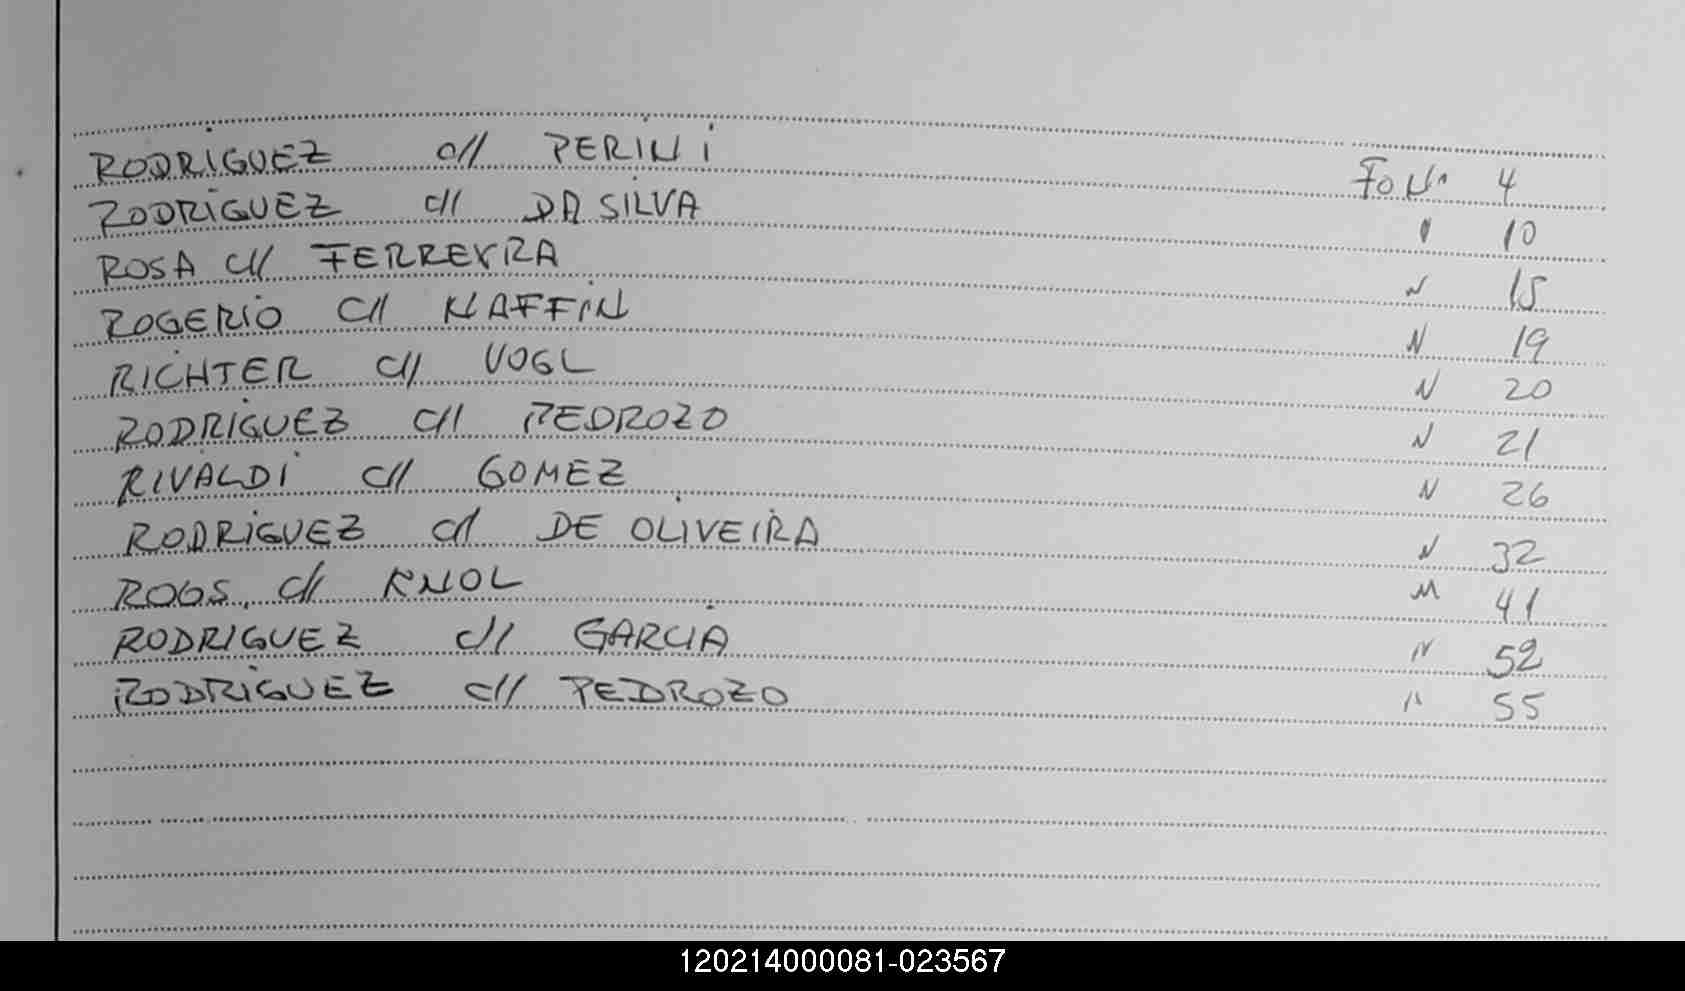 RODRIGUEZ c// PERINI Fo Nº 4
RODRIGUEZ c// DA SILVA " 10
ROSA c// FERREYRA " 15
ROGERIO c// NAFFIN " 19
RICHTER c// VOGL " 20
RODRIGUEZ c// PEDROZO " 21
RIVALDI c// GOMEZ " 26
RODRIGUEZ c// DE OLIVEIRA " 32
c// KNOL " 41
RODRIGUEZ c// GARCIA " 52
RODRIGUEZ c// PEDROZO " 55
120214000081-023567